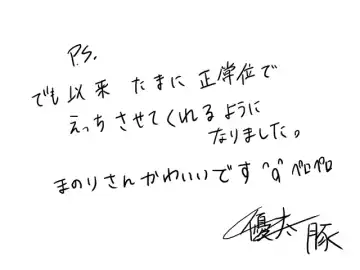 P.S.
でも以来 たまに 正常位で
えっち させてくれるように
なりました。
まのりさんかわいいです ^q^ ペロペロ
優太 豚